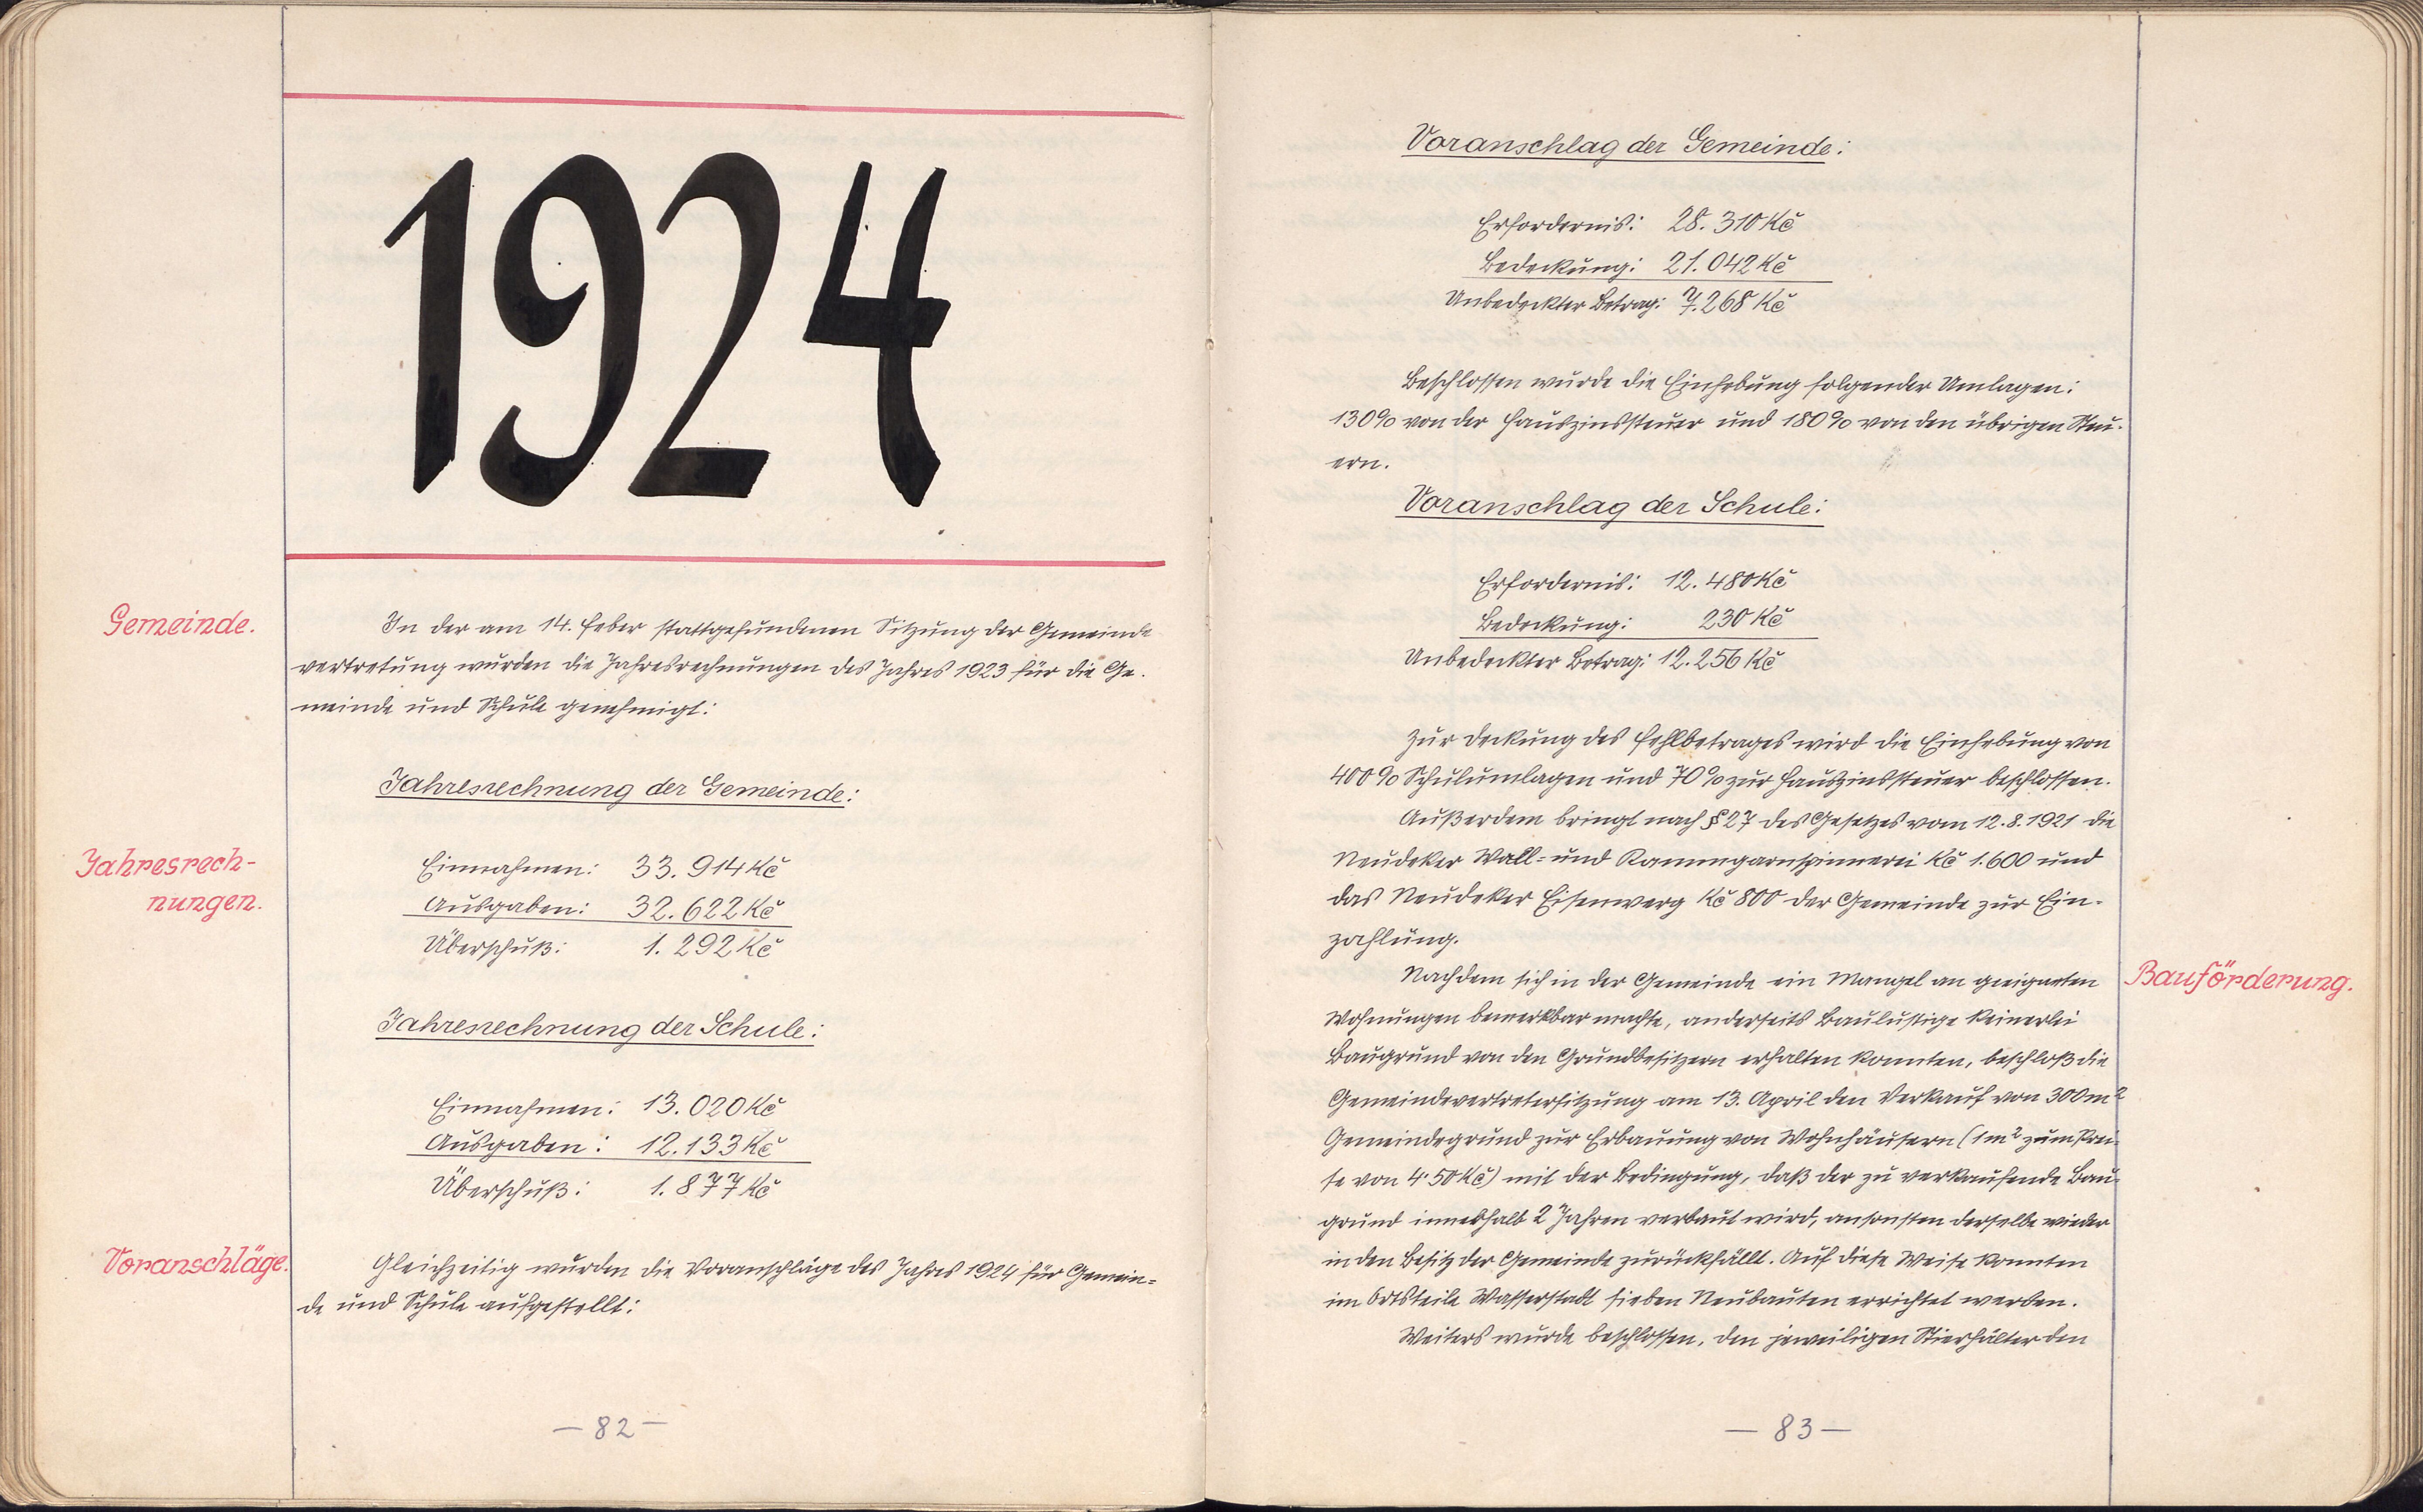 1924
Gemeinde.
In der am 14. Feber stattgefundenen Sitzung der Gemeinde
vertretung wurden die Jahresrechnungen des Jahres 1923 für die Ge-
meinde und Schule genehmigt:
Jahresrechnung der Gemeinde:
Jahresrech-
nungen.
Einnahmen: 33.914 Kč
Ausgaben: 32.622 Kč
Überschuß: 1.292 Kč
Jahresrechnung der Schule:
Einnahmen: 13.020 Kč
Ausgaben: 12.133 Kč
Überschuß: 1.877 Kč
Voranschläge.
Gleichzeitig wurden die Voranschläge des Jahres 1924 für Gemein=
de und Schule aufgestellt:
— 82 —
Voranschlag der Gemeinde:
Erfordernis: 28.310 Kč
Bedeckung: 21.042 Kč
Unbedeckter Betrag: 7.268 Kč
Beschlossen wurde die Einhebung folgender Umlagen:
130% von der Hauszinssteuer und 180% von den übrigen Steu-
ern.
Voranschlag der Schule:
Erfordernis: 12.480 Kč
Bedeckung: 230 Kč
Unbedeckter Betrag: 12.256 Kč
Zur Deckung des Fehlbetrages wird die Einhebung von
400% Schulumlagen und 70% zur Hauszinssteuer beschlossen.
Außerdem bringt nach § 27 des Gesetzes vom 12.8.1921 die
Neudeker Woll= und Kammgarnspinnerei Kč 1.600 und
das Neudeker Eisenwerg Kč 800 der Gemeinde zur Ein-
zahlung.
Bauförderung.
Nachdem sich in der Gemeinde ein Mangel an geeigneten
Wohnungen bemerkbar machte, anderseits Baulustige keinerlei
Baugrund von den Grundbesitzern erhalten konnten, beschloß die
Gemeindevertretersitzung am 13. April den Verkauf von 300 m²
Gemeindegrund zur Erbauung von Wohnhäusern (1 m² zum Prei-
se von 4·50 Kč) mit der Bedingung, daß der zu verkaufende Bau-
grund innerhalb 2 Jahren verbaut wird, ansonsten derselbe wieder
in den Besitz der Gemeinde zurückfällt. Auf diese Weise konnten
im Ortsteile Wasserstadt sieben Neubauten errichtet werden.
Weiters wurde beschlossen, den jeweiligen Stierhälter den
— 83 —